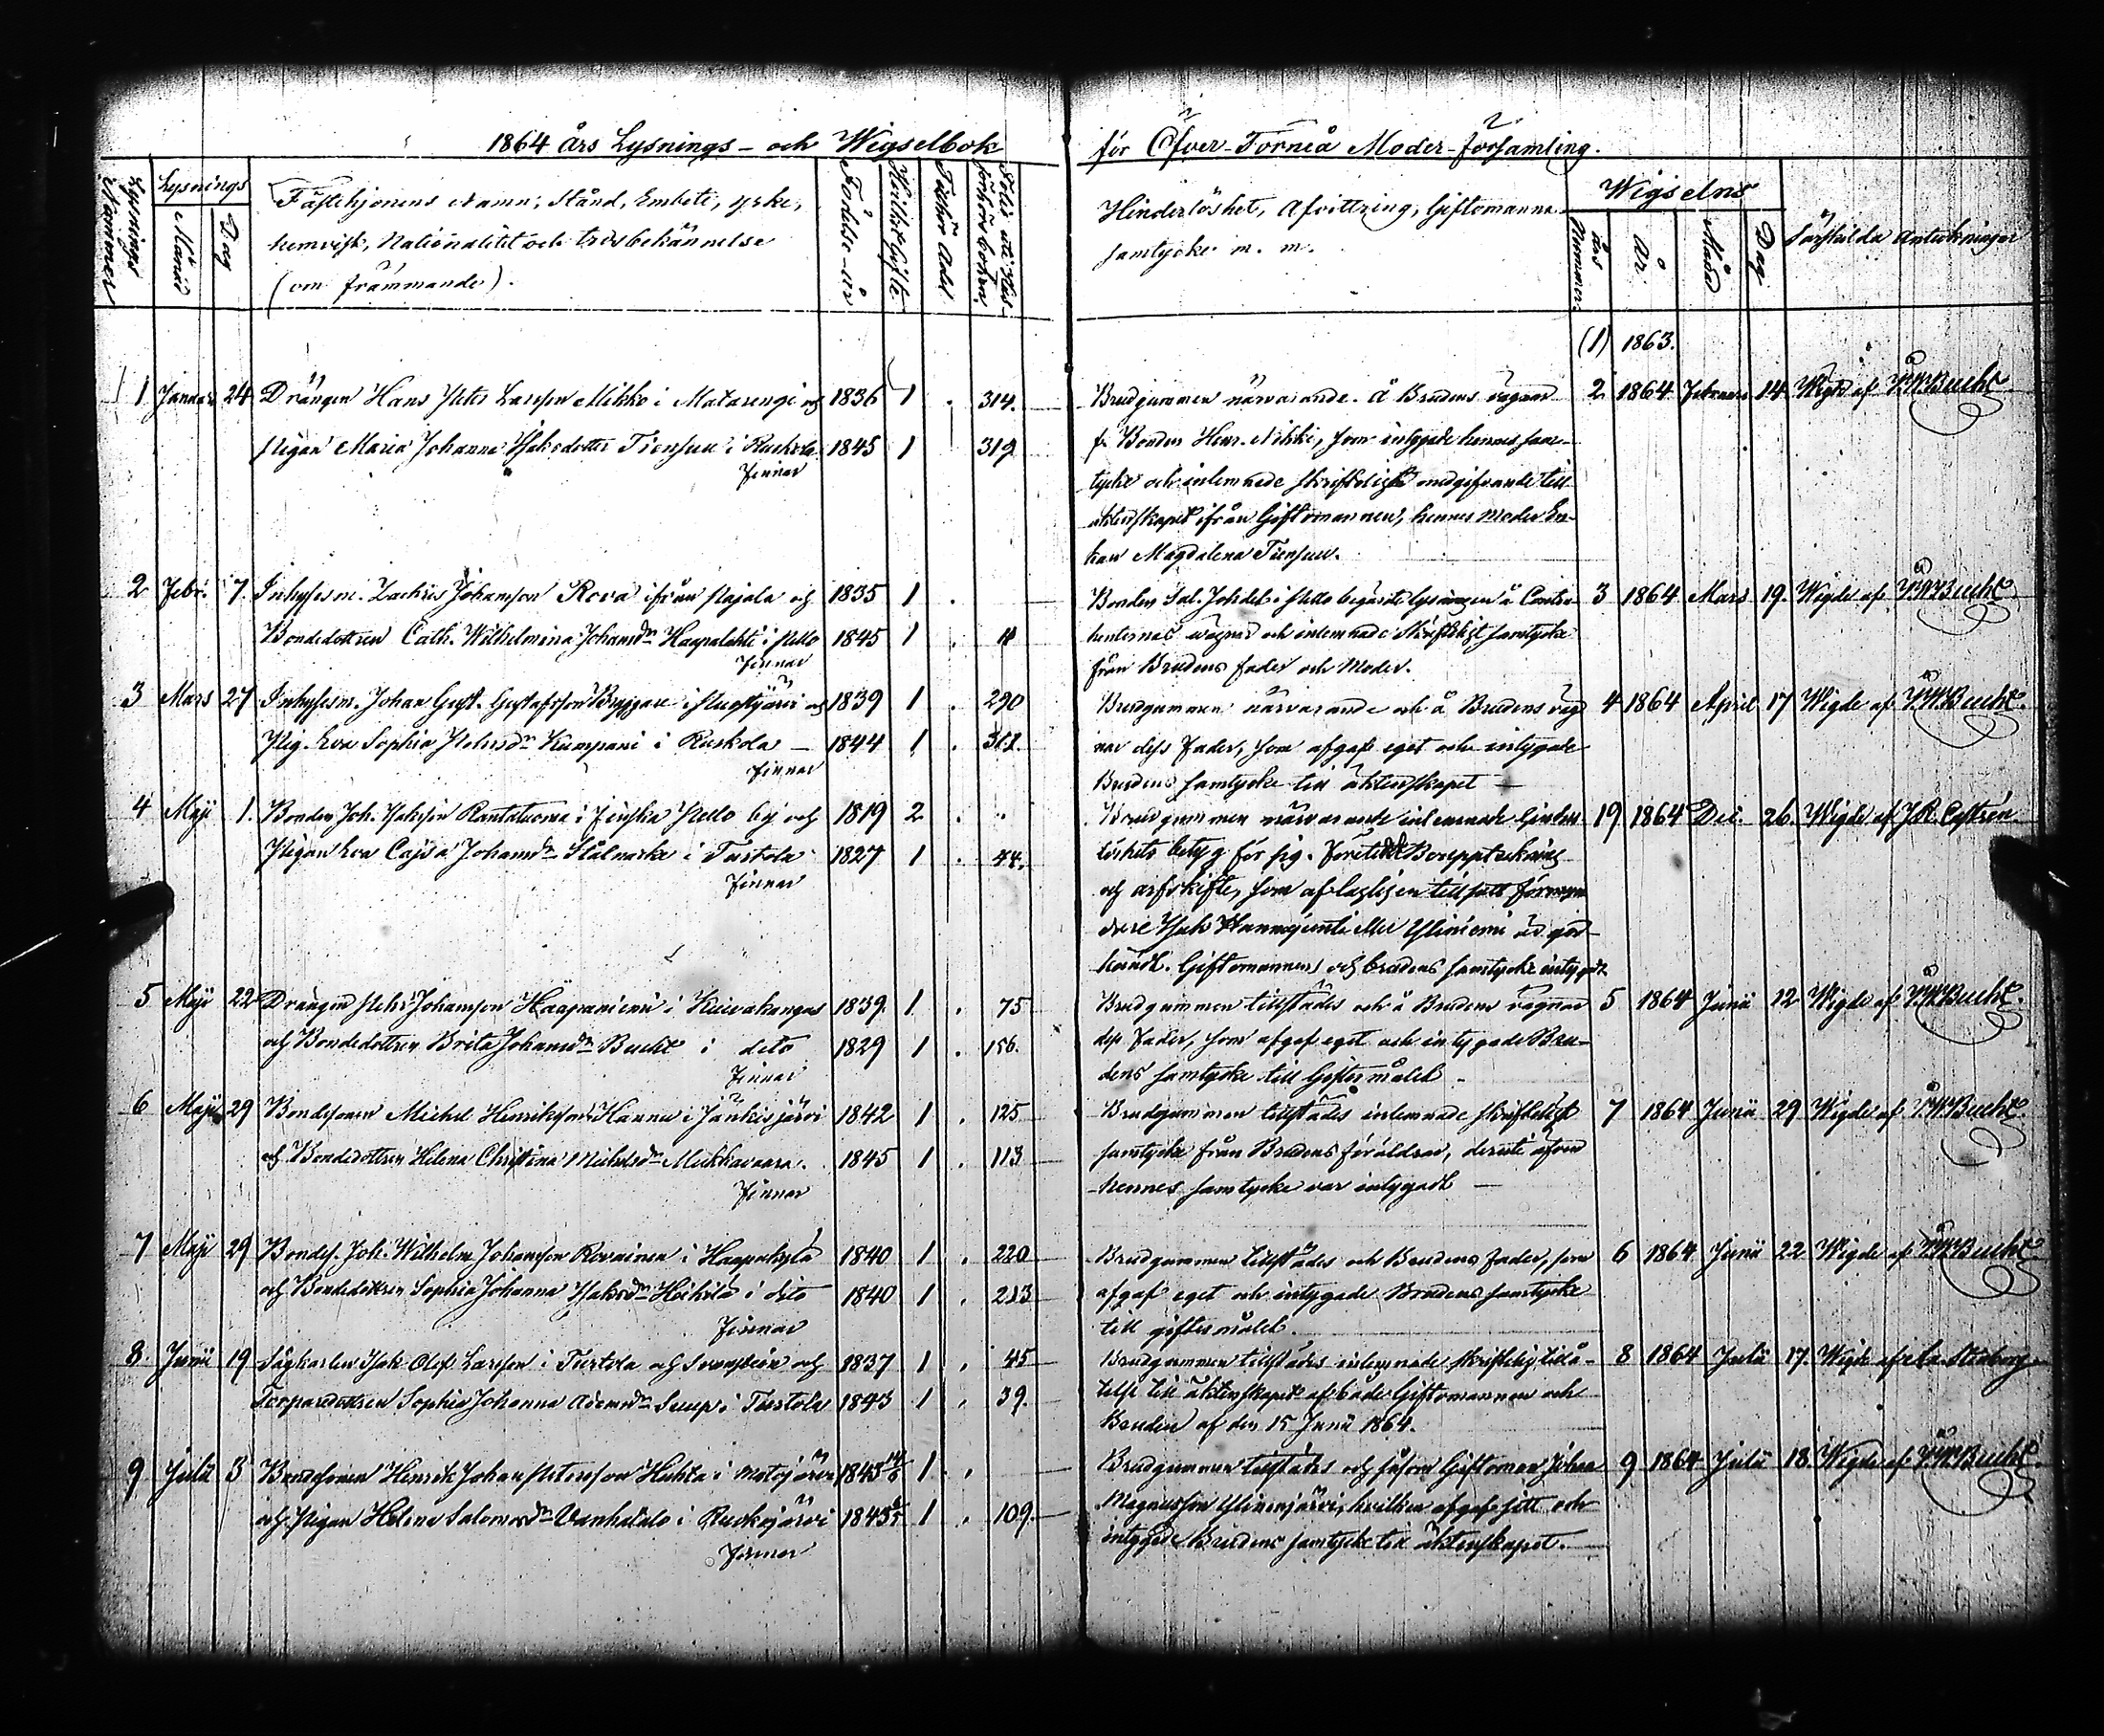 1864 års Lysnings- och Wigselbok
för Öfver-Torneå Moder-församling.
Lysnings Nummer
Lysnings
Månad
Dag
Fästehjonens Namn, Stånd, Embete, yrke,
hemvist, Nationalitet och trosbekännelse
(om främmande).
Födelse-år
Hvilket Gifte
Folio uti Hus-
förhörsboken
Hinderlöshet, Afvittring, Giftomanna
samtycke m. m.
Wigselns
Års Nummer
År
Månad
Dag
Särskilda Anteckningar
(1) 1863.
1 Januar 24 Drängen Hans Peter Larsson Mikko i Matarengi och 1836 1 . 314.
Pigan Maria Johanna Isaksdotter Tiensuu i Ruskola 1845 1 319
Finnar
Brudgummen närvarande. Å Brudens vägnar 2 1864 Februari 14 Wigde af Bucht
f. Bonden Henr. Mikko, som intygade hennes sam-
tycke och inlemnade skriftligt medgifvande till
äktenskapet ifrån Giftomannen, hennes moder En-
kan Magdalena Tiensuu.
2 Febr. 7. Inhyses m. Zachris Johansson Rova ifrån Pajala och 1835 1 .
Bondedottren Cath. Wilhelmina Johansdr Haapalahti i Pello 1845 1 .
Finnar
Bonden Sal. i Pello begärde lysningen å Contra- 3 1864 Mars 19. Wigde af Bucht
henternas vägnar och inlemnade Skriftligt samtycke
från Brudens fader och Moder.
3 Mars 27 Inhyses m. Johan Gust. Gustafsson Bryggare i och 1839 1 . 290
Pig. Eva Sophia Petersdr Kumpani i Ruskola — 1844 1 .
Finnar
Brudgummen närvarande och å Brudens väg- 4 1864 April 17 Wigde af Bucht.
nar dess Fader, som afgaf eget och intygade
Brudens samtycke till äktenskapet —
4 Maji 1. Bonden Joh. Isaksson Rantatuoma i Finska Pello by och 1819 2 .
Pigan Eva Cajsa Johansdr Stålnacke i Turtola 1827 1 . 44.
Finnar
Brudgummen närvarande inlemnade hinder- 19 1864 Dec. 26. Wigde af J R Castrén
löshets betyg för sig. Företedde Bouppteckning
och arfskifte, som af lagligen tillsatt förmyn-
dare Isak eller Yliniemi är god-
kändt. Giftomannens och brudens samtycke intygadt
5 Maji 22 Drängen Pehr Johansson Haapaniemi i Kuivakangas 1839. 1 . 75
och Bondedottren Brita Johansdr Bucht i dito 1829 1 . 156.
Finnar
Brudgummen tillstädes och å Brudens vägnar 5 1864 Junii 12 Wigde af Bucht.
dess Fader, som afgaf eget och intygade Bru-
dens samtycke till Giftermålet
6 Maji 29 Bondesonen Michel Henriksson Hannu i Jänkisjärvi 1842 1 . 125
och Bondedottren Helena Christina Michelsdr Mukkavaara. 1845 1 . 113
Finnar
Brudgummen tillstädes inlemnade skriftligt 7 1864 Junii 29 Wigde af Bucht
samtycke från Brudens föräldrar, deruti äfven
hennes samtycke var intygadt —
7 Maji 29 Bondes. Joh. Wilhelm Johansson Rovainen i Haapakylä 1840 1 . 220
och Bondedottren Sophia Johanna Isaksdr Heikilä i dito 1840 1 . 213
Finnar
Brudgummen tillstädes och Brudens Fader, som 6 1864 Junii 22 Wigde af Bucht
afgaf eget och intygade Brudens samtycke
till giftermålet.
8. Junii 19 Sågkarlen Isak Olof Larsson i Turtola och Svanstein och 1837 1 . 45
Torparedottren Sophia Johanna Adamsdr i Turtola 1843 1 . 39.
Brudgummen tillstädes inlemnade skriftlig tillå- 8 1864 Julii 17. Wigde af
telse till äktenskapet af både Giftomannen och
Bruden af den 15 Junii 1864.
9 Julii 3 Bondesonen Henrik Johan Petersson Huhta i Matojärvi 1843 1 .
och Pigan Helena Salomonsdr Vanhatalo i Ruokojärvi 1843 1 . 109.
Finnar
Brudgummen tillstädes och såsom Giftoman Johan 9 1864 Julii 18. Wigde af Bucht.
Magnusson Ylinenjärvi, hvilken afgaf sitt och
intygade Brudens samtycke till äktenskapet.